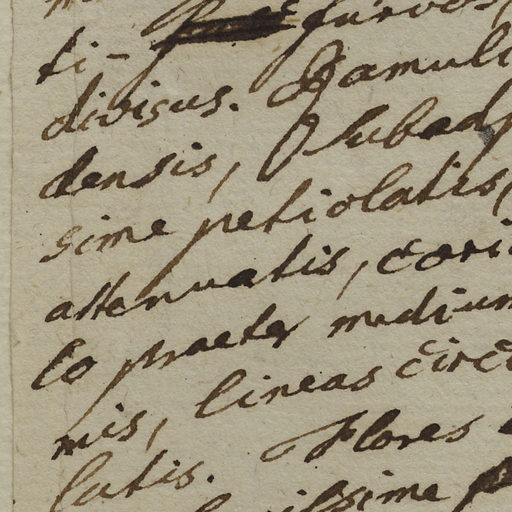 ti- furvos,
divisus. Gamuli
densis, subadp
sime petiolatis,
attenuatis, cori
lo praeter medium
mis, lineas circi
latis. Flores
issime